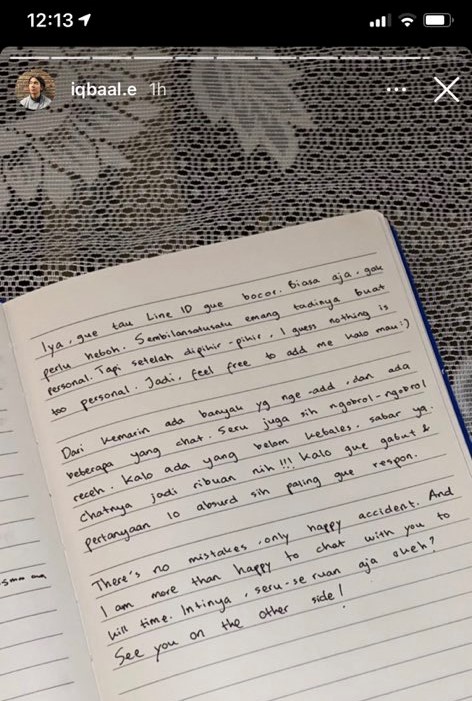 12:13
iqbaal.e 1h
Iya, gue tau Line ID gue bocor. Biasa aja. gak
perlu heboh. Sembilansatusatu emang tadinya buat
personal. Tapi setelah dipikir-pikir, I guess nothing is
too personal. Jadi, feel free to add me kalo mau:)
Dari kemarin ada banyak yg nge-add, dan ada
beberapa yang chat. Seru juga sih ngobrol-ngobrol
receh. Kalo ada yang belom kebales, sabar ya.
chatnya jadi ribuan nih!!! Kalo gue gabut &
pertanyaan lo absurd sih paling gue respon.
There's no mistakes, only happy accident. And
I am more than happy to chat with you to
kill time. Intinya, seru-seruan aja okeh?
See you on the other side!